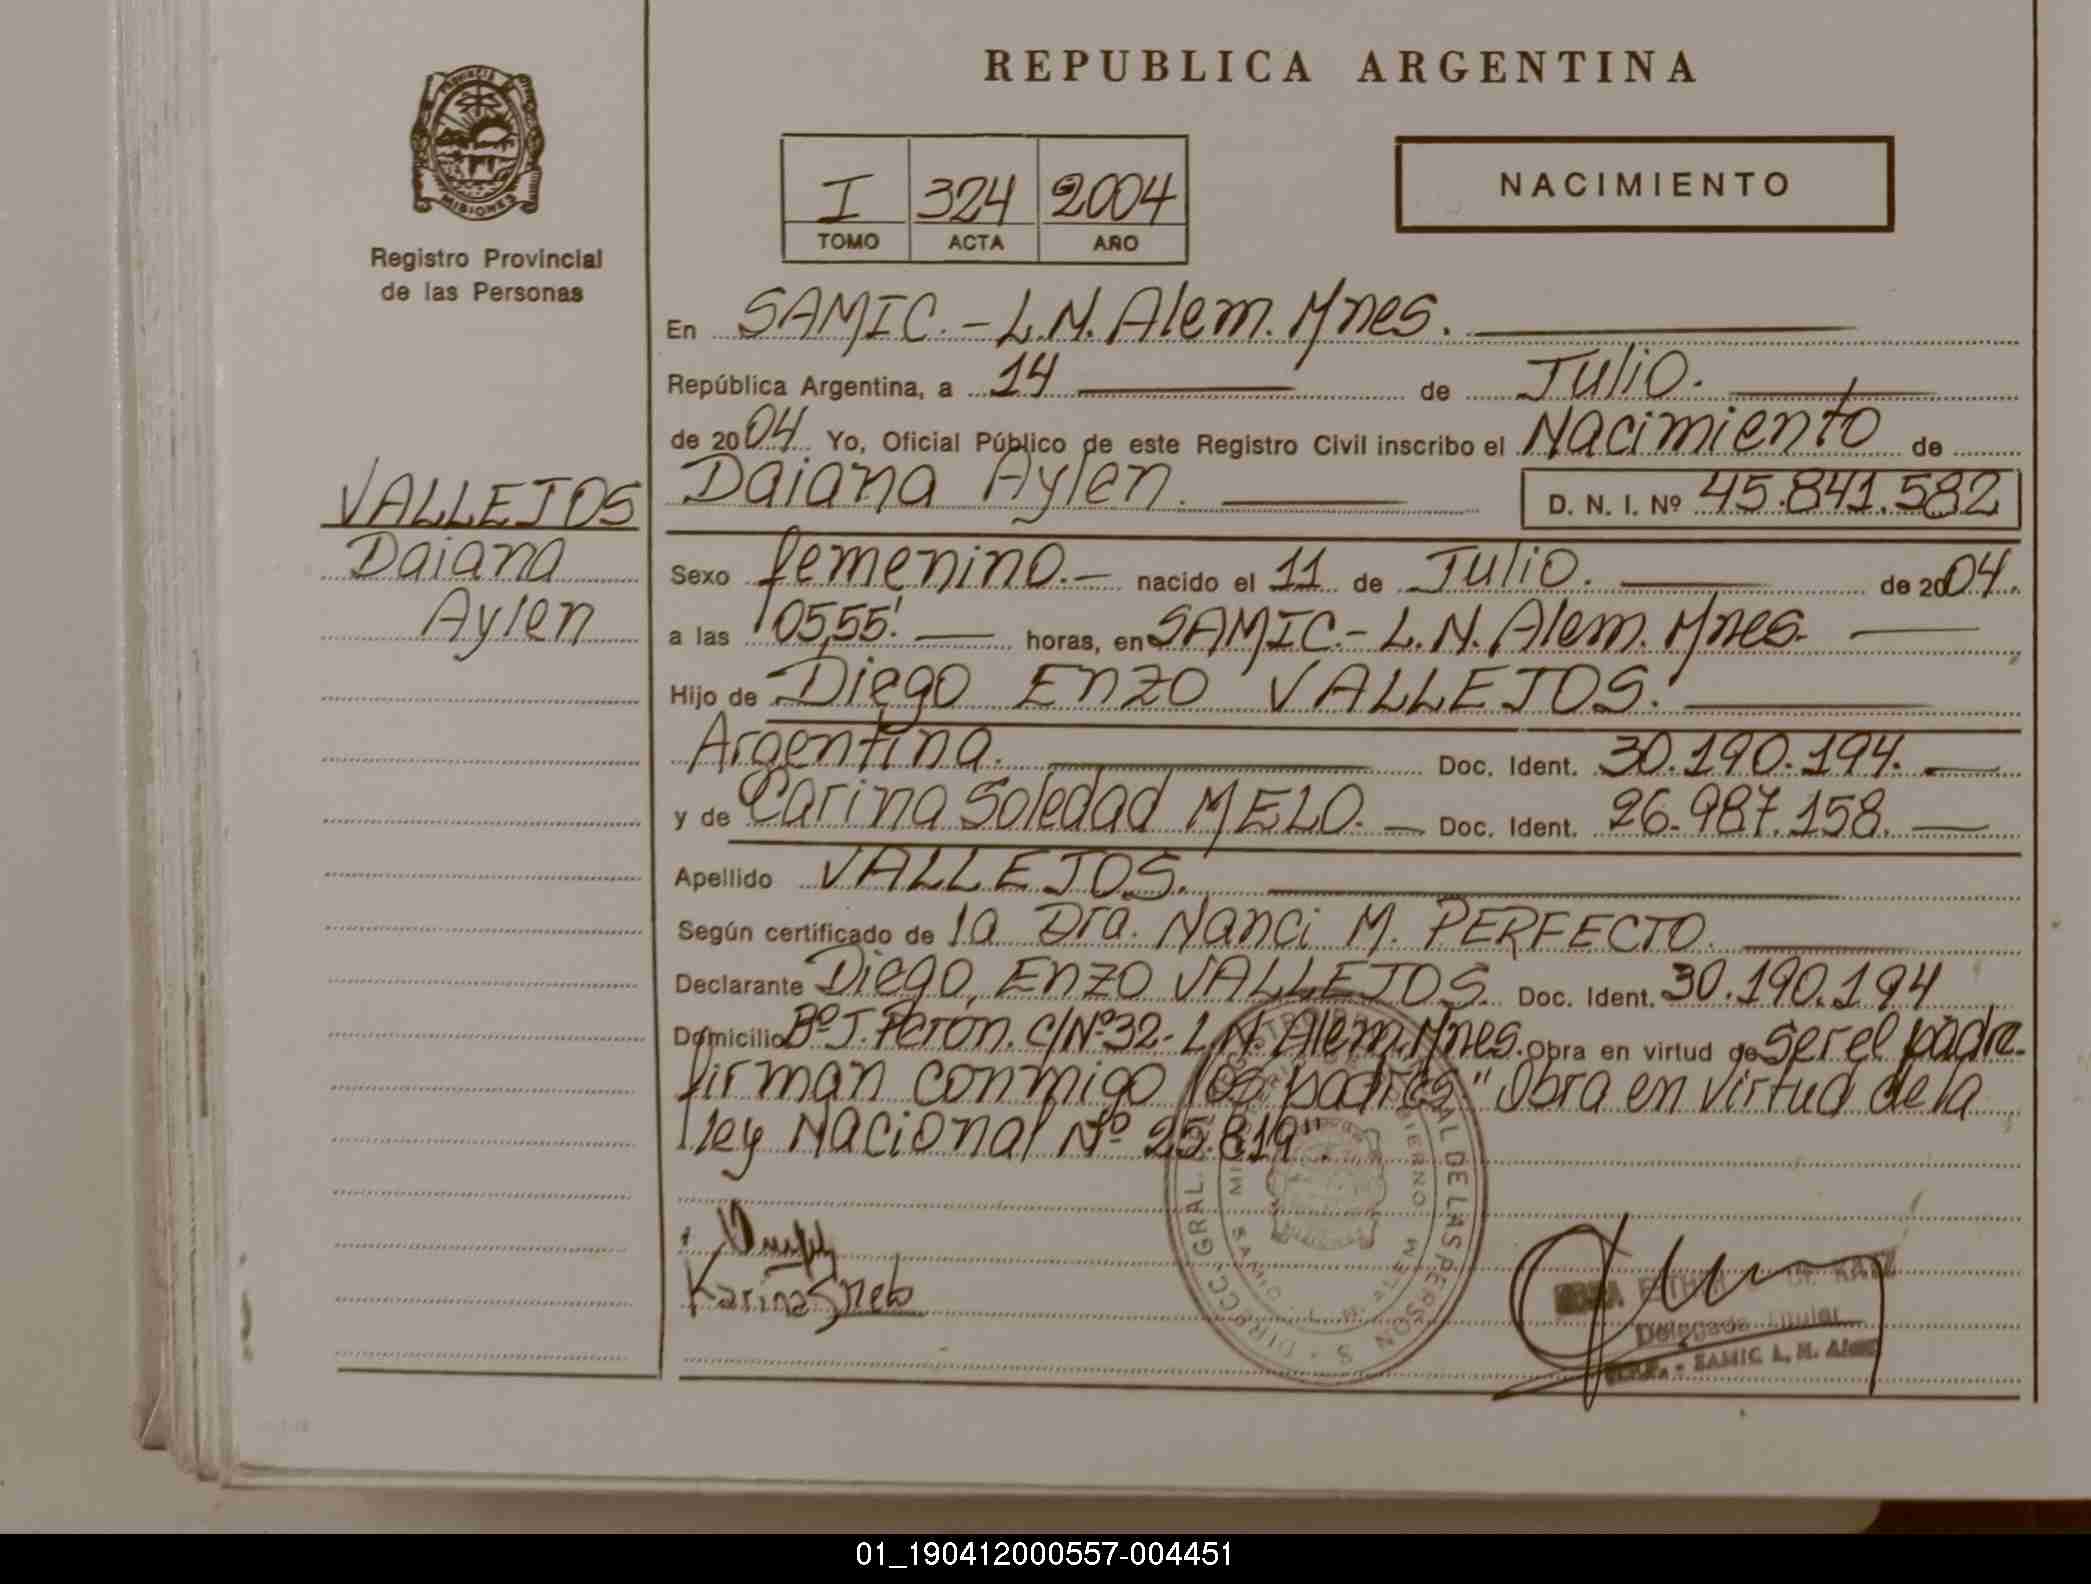 REPUBLICA ARGENTINA
PROVINCIA
MISIONES
Registro Provincial
de las Personas
I 324 2004
TOMO ACTA AÑO
NACIMIENTO
En SAMIC.-L.N.Alem.Mnes.
República Argentina, a 14 de Julio.
de 2004 Yo, Oficial Público de este Registro Civil inscribo el Nacimiento de
Daiana Aylen. D. N. I. Nº 45.841.582
VALLEJOS
Daiana
Aylen
Sexo femenino.- nacido el 11 de Julio. de 2004.
a las 05,55' horas, en SAMIC.-L.N.Alem.Mnes.
Hijo de Diego Enzo VALLEJOS.
Argentina. Doc. Ident. 30.190.194.
y de Carina Soledad MELO. Doc. Ident. 26.987.158.
Apellido VALLEJOS.
Según certificado de la Dra. Nanci M. PERFECTO.
Declarante Diego, Enzo VALLEJOS. Doc. Ident. 30.190.194
Domicilio Bº J.Perón. c/Nº32-L.N.Alem.Mnes. Obra en virtud de ser el padre.
firman conmigo los padres." Obra en virtud de la
ley Nacional Nº 25.819"
Karina S Melo
DIRECC. GRAL. DEL AS PERSON S
GOBIERNO
SAMIC L. N. ALEM
Delegada Titular
SAMIC L. N. Alem
01_190412000557-004451